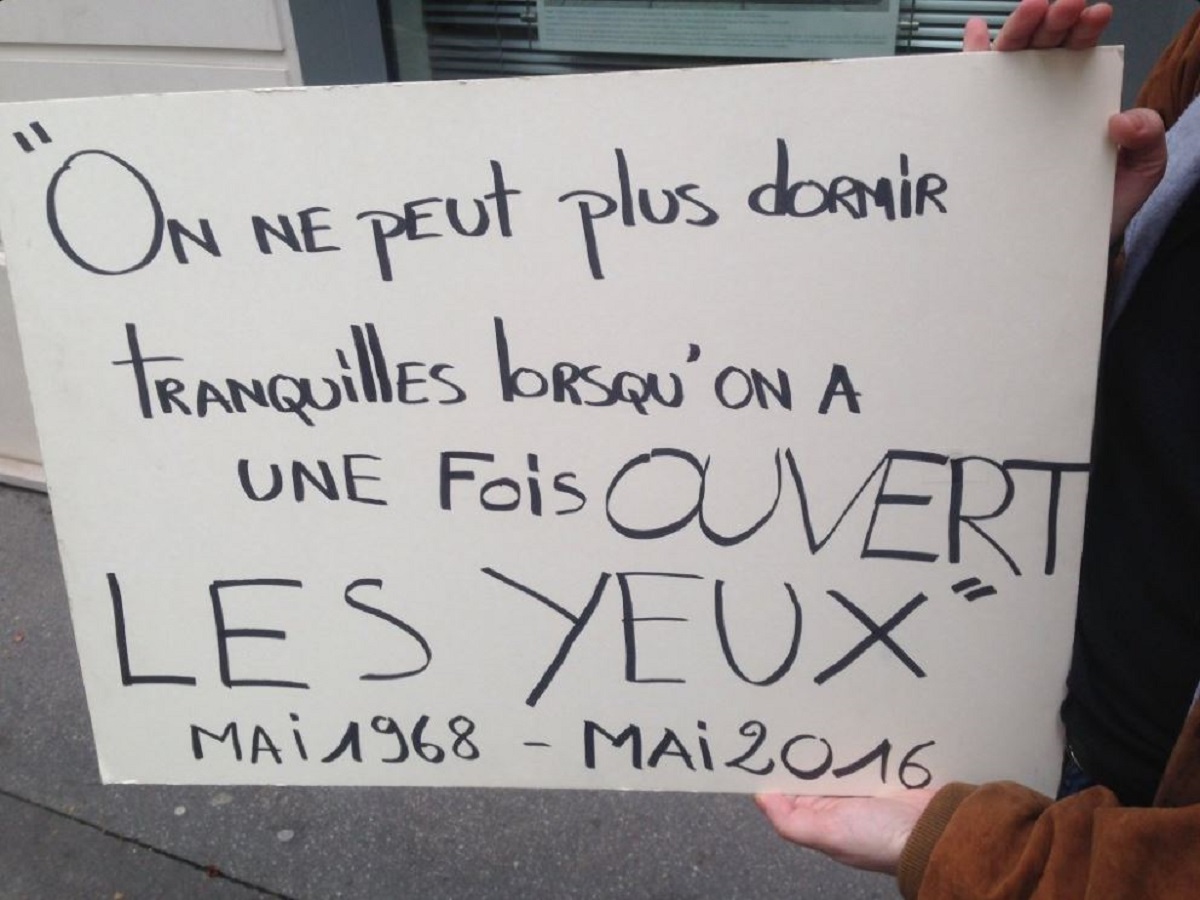 "On NE PEUt plus dORMiR
tRANQUillES lORSQU'ON A
UNE Fois OUVERT
LES YEUX"
MAi 1968 - MAi 2016